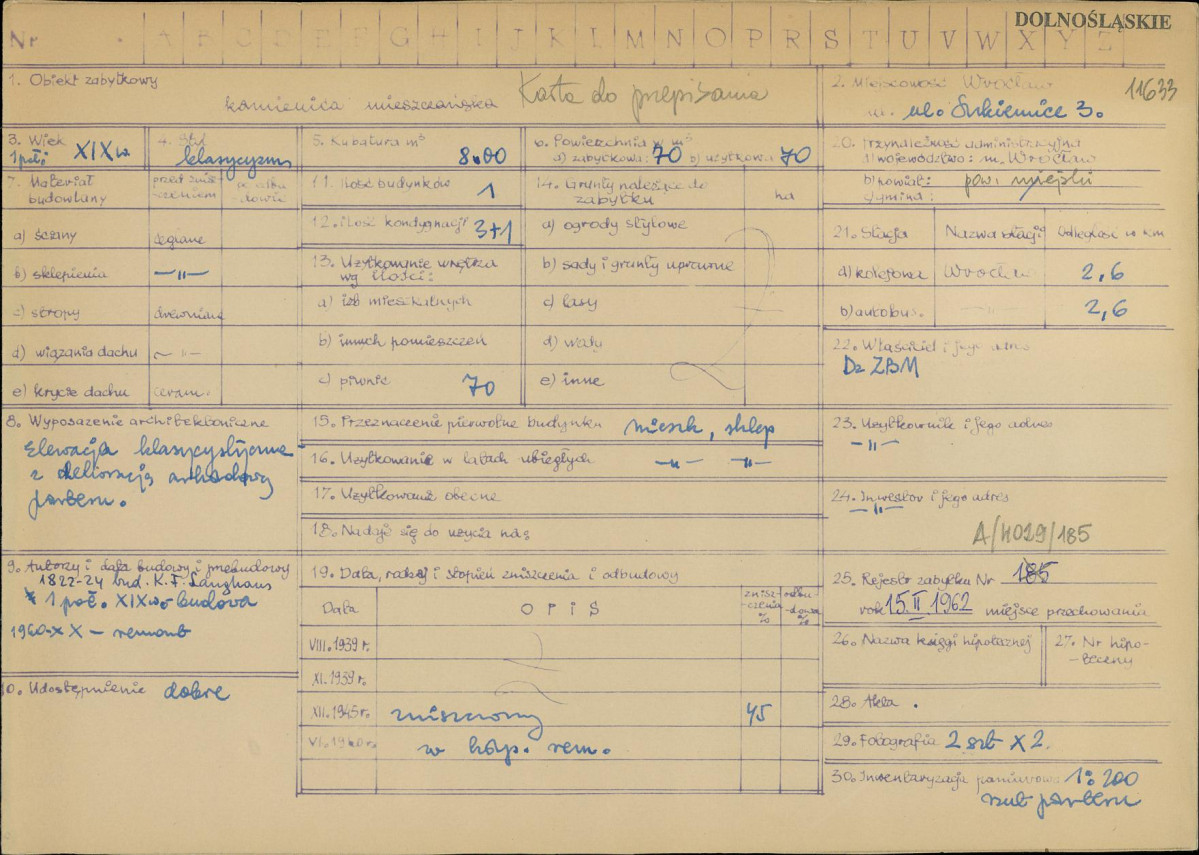 DOLNOŚLĄSKIE
Nr . A B C D E F G H I J K L M N O P R S T U V W X Y Z
1. Obiekt zabytkowy
kamienica mieszczańska Karta do przepisania
2. Miejscowość Wrocław 11633
ul. Sukiennice 3.
3. Wiek
1 poł; XIX w
4. Styl
klasycyzm
5. Kubatura m³
8.00
6. Powierzchnia w m²
a) zabytkowa: 70 b) użytkowa 70
20. Przynależność administracyjna
a) województwo: m. Wrocław
b) powiat: pow. miejski
gmina:
7. Materiał budowlany
przed znisz-
-czeniem
po odbu
-dowie
a) ściany ceglane
b) sklepienia —"—
c) stropy drewniane
d) wiązania dachu —"—
e) krycie dachu ceram.
11. Ilość budynków 1
12. Ilość kondygnacji 3+1
13. Użytkowanie wnętrza
wg ilości:
a) izb mieszkalnych
b) innych pomieszczeń
c) piwnic 70
14. Grunty należące do
zabytku ha
a) ogrody stylowe
b) sady i grunty uprawne
c) lasy
d) wody
e) inne
21. Stacja Nazwa stacji Odległość w km
a) kolejowa Wrocław 2,6
b) autobus. —"— 2,6
22. Właściciel i jego adres
Dz ZBM
8. Wyposażenie architektoniczne
Elewacja klasycystyczna
z dekoracją arkadową
parteru.
15. Przeznaczenie pierwotne budynku mieszk, sklep
16. Użytkowanie w latach ubiegłych —"— —"—
17. Użytkowanie obecne
18. Nadaje się do użycia na:
23. Użytkownik i jego adres
—"—
24. Inwestor i jego adres
—"—
A/4029/185
9. Autorzy i data budowy i przebudowy
1822-24 bud. K.F. Langhans
1 poł. XIX w - budowa
1960-XX - remont
10. Udostępnienie dobre
19. Data, rodzaj i stopień zniszczenia i odbudowy
Data OPIS znisz-
-czenia
% odbu-
-dowa
%
VIII.1939 r.
XI.1939 r.
XII.1945 r. zniszczony 45
VI.1960 r. w kap. rem.
25. Rejestr zabytku Nr 185
rok 15.II.1962 miejsce przechowania
26. Nazwa księgi hipotecznej
27. Nr hipo-
-teczny
28. Akta .
29. Fotografia 2 szt x 2.
30. Inwentaryzacja pomiarowa 1:200
rzut parteru